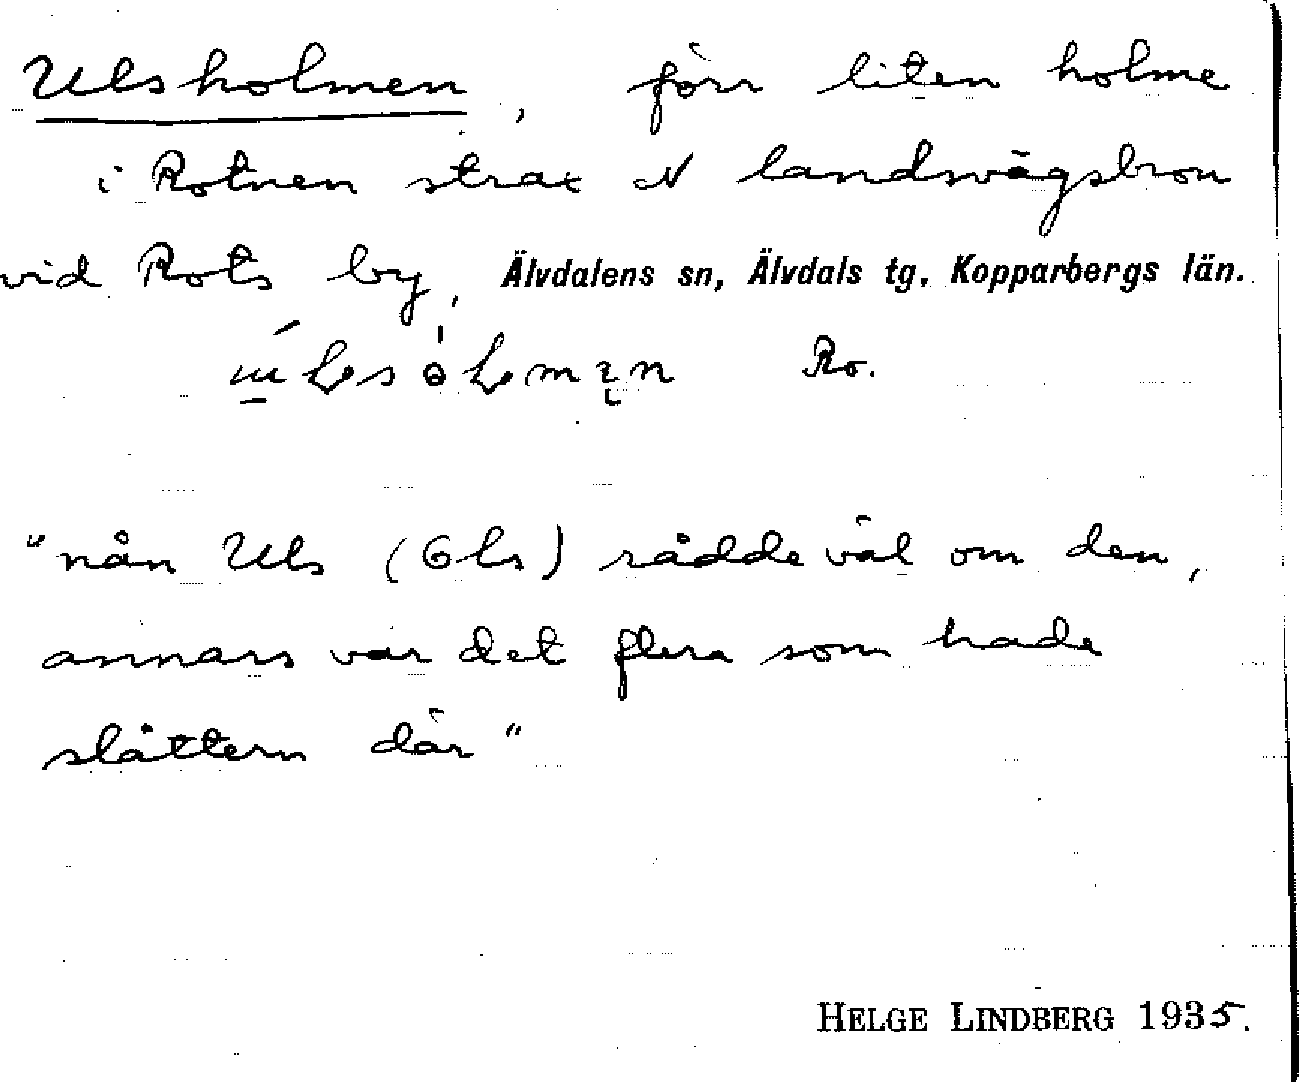 Ulsholmen, förr liten holme
i Rotnen strax N landsvägsbron
vid Rots by, Älvdalens sn, Älvdals tg. Kopparbergs län.
Ro.
"nån Uls (Ols) rådde väl om den,
annars var det flera som hade
slåttern där"
HELGE LINDBERG 1935.